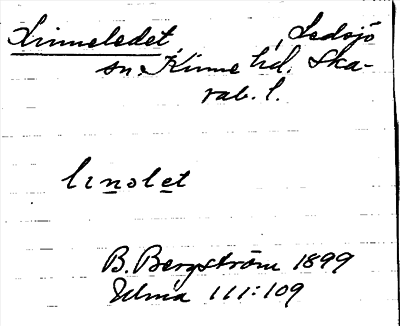 Linneledet, Ledsjö
sn, Kinne hd. Ska-
rab. l.
linolet
B. Bergström 1899
Ulma 111:109